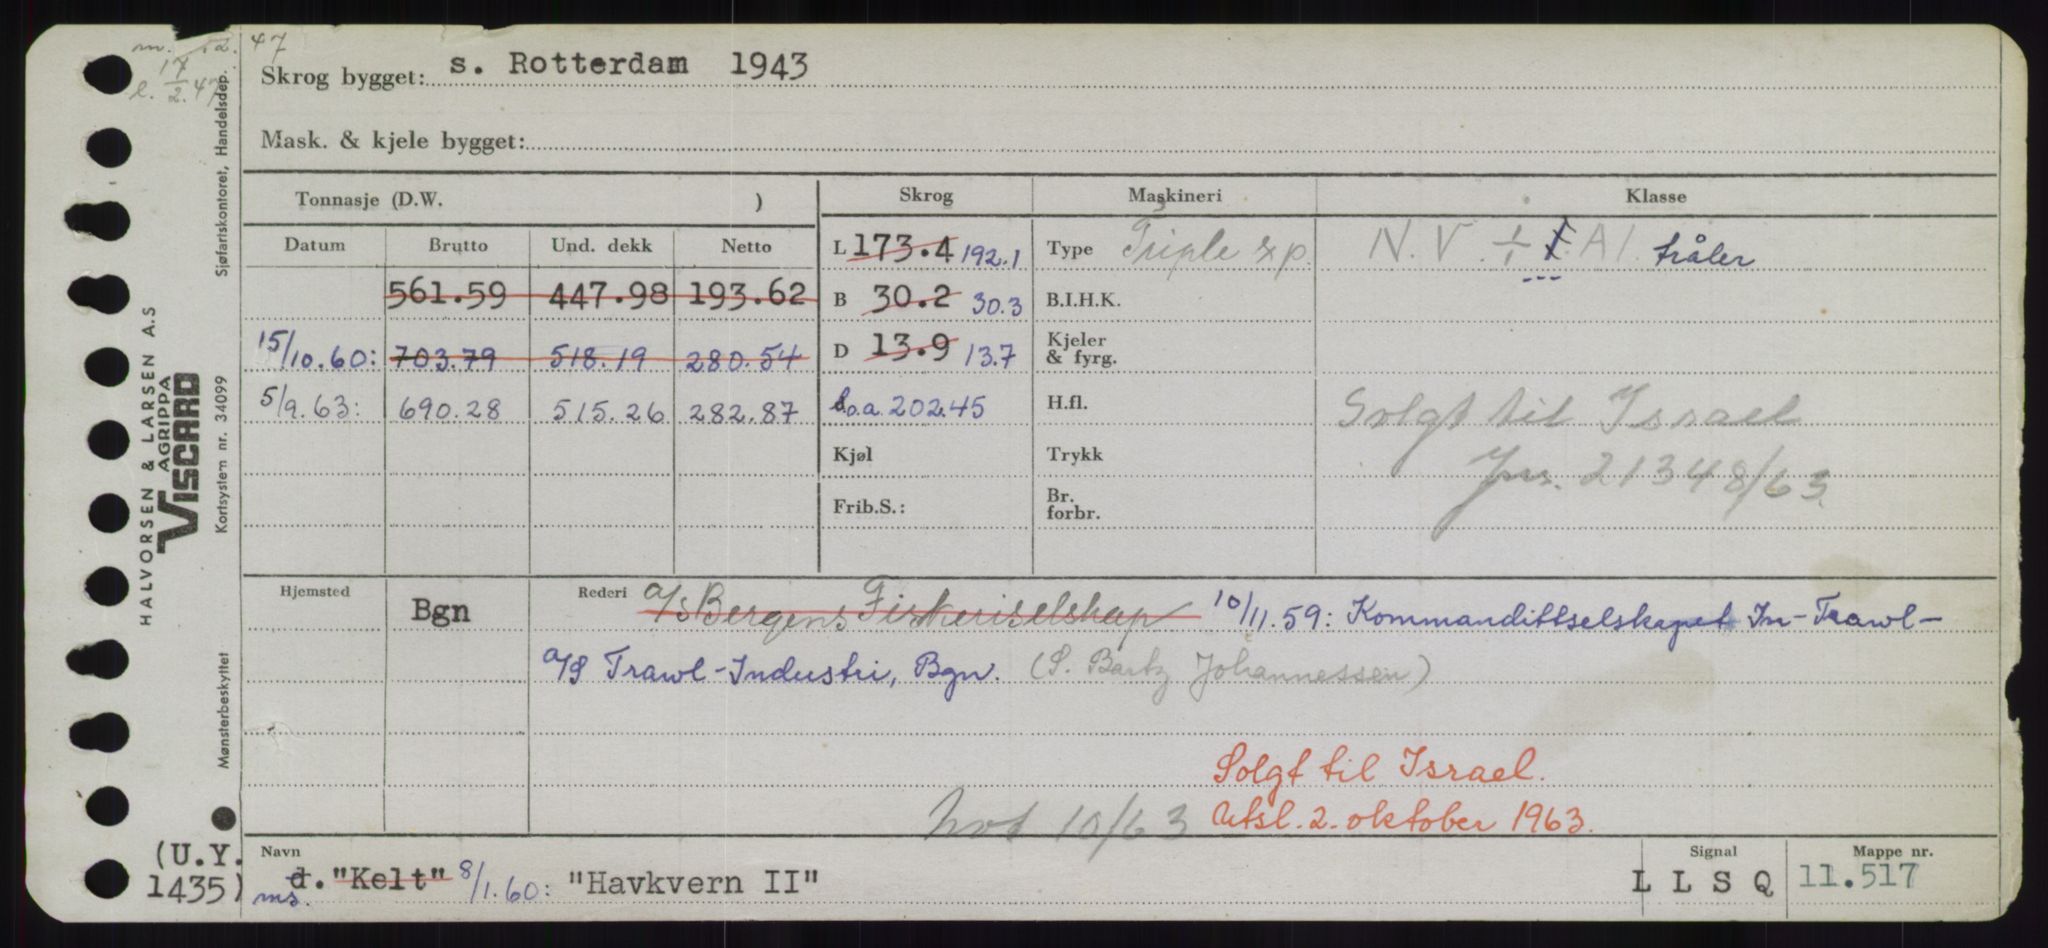 m. 12. 47
l. 17/2. 47
Skrog bygget: s. Rotterdam 1943
Mask. & kjele bygget:
Tonnasje (D.W. )
Skrog Maskineri Klasse
Datum Brutto Und. dekk Netto
L 173.4 192.1 Type Triple xp. N.V. ÷ F. A1. tråler
561.59 447.98 193.62
B 30.2 30.3 B.I.H.K.
15/10.60: 703.79 518.19 280.54
D 13.9 13.7 Kjeler & fyrg.
5/9.63: 690.28 515.26 282.87
l.o.a. 202.45 H.fl. Solgt til Israel
Kjøl Trykk Jnr. 21348/63
Frib.S.: Br. forbr.
Hjemsted Bgn Rederi a/s Bergens Fiskeriselskap 10/11.59: Kommandittselskapet In-Trawl-
A/S Trawl-Industri, Bgn. (S. Bartz Johannessen)
Solgt til Israel.
Not 10/63 Utsl. 2. oktober 1963.
Navn Signal Mappe nr.
d. "Kelt" 8/1.60: "Havkvern II" L L S Q 11.517
ms.
(U.Y. 1435)
HALVORSEN & LARSEN A.S
AGRIPPA
VISCARD
Sjøfartskontoret, Handelsdep.
Kortsystem nr. 34099
Mønsterbeskyttet